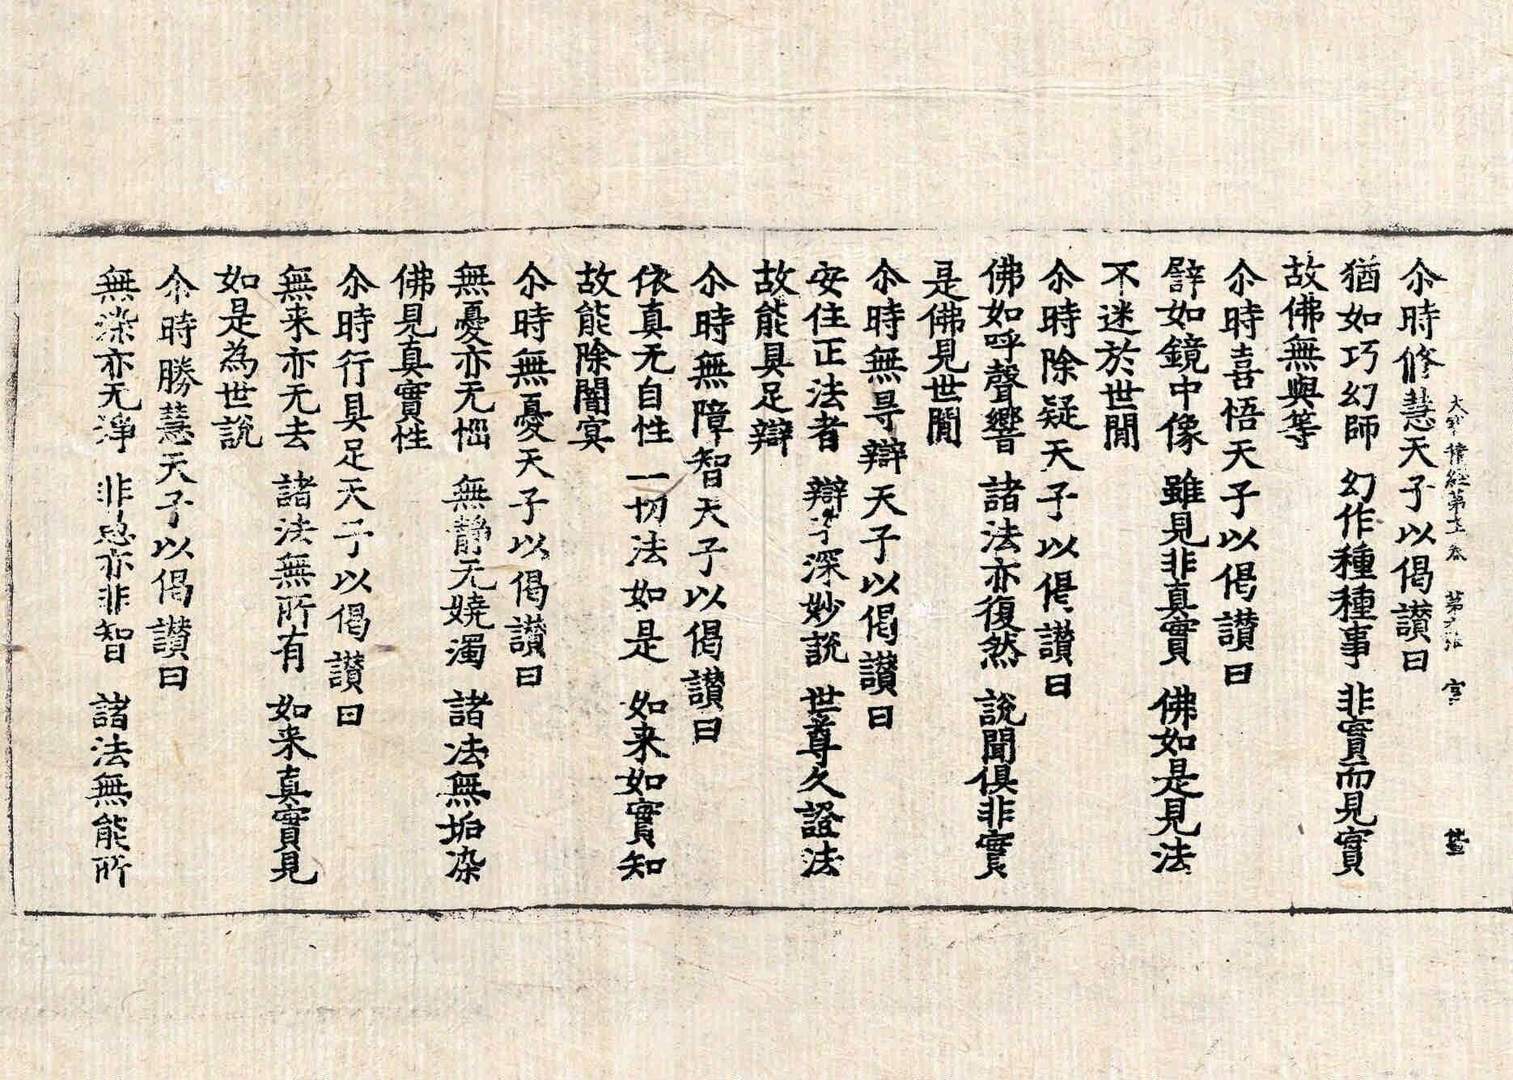 尒時修慧天子以偈讃曰
猶如巧幻師 幻作種種事 非實而見實
故佛無與等
尒時喜悟天子以偈讃曰
譬如鏡中像 雖見非真實 佛如是見法
不迷於世閒
尒時除疑天子以偈讃曰
佛如呼聲響 諸法亦復然 說聞俱非實
是佛見世閒
尒時無㝵辯天子以偈讃曰
安住正法者 辯才深妙說 世尊久證法
故能具足辯
尒時無障智天子以偈讃曰
依真无自性 一切法如是 如来如實知
故能除闇冥
尒時無憂天子以偈讃曰
無憂亦无惱 無靜无嬈濁 諸法無垢染
佛見真實性
尒時行具足天子以偈讃曰
無来亦无去 諸法無所有 如来真實見
如是為世說
尒時勝慧天子以偈讃曰
無染亦无淨 非愚亦非智 諸法無能所